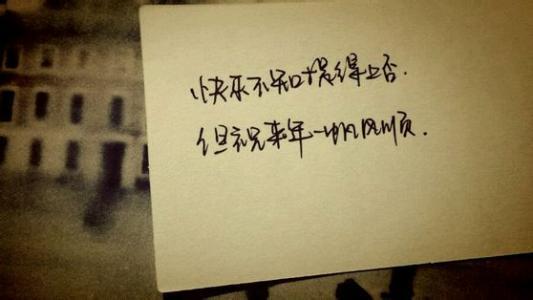 快乐不知得上否.
但祝来年一帆风顺.